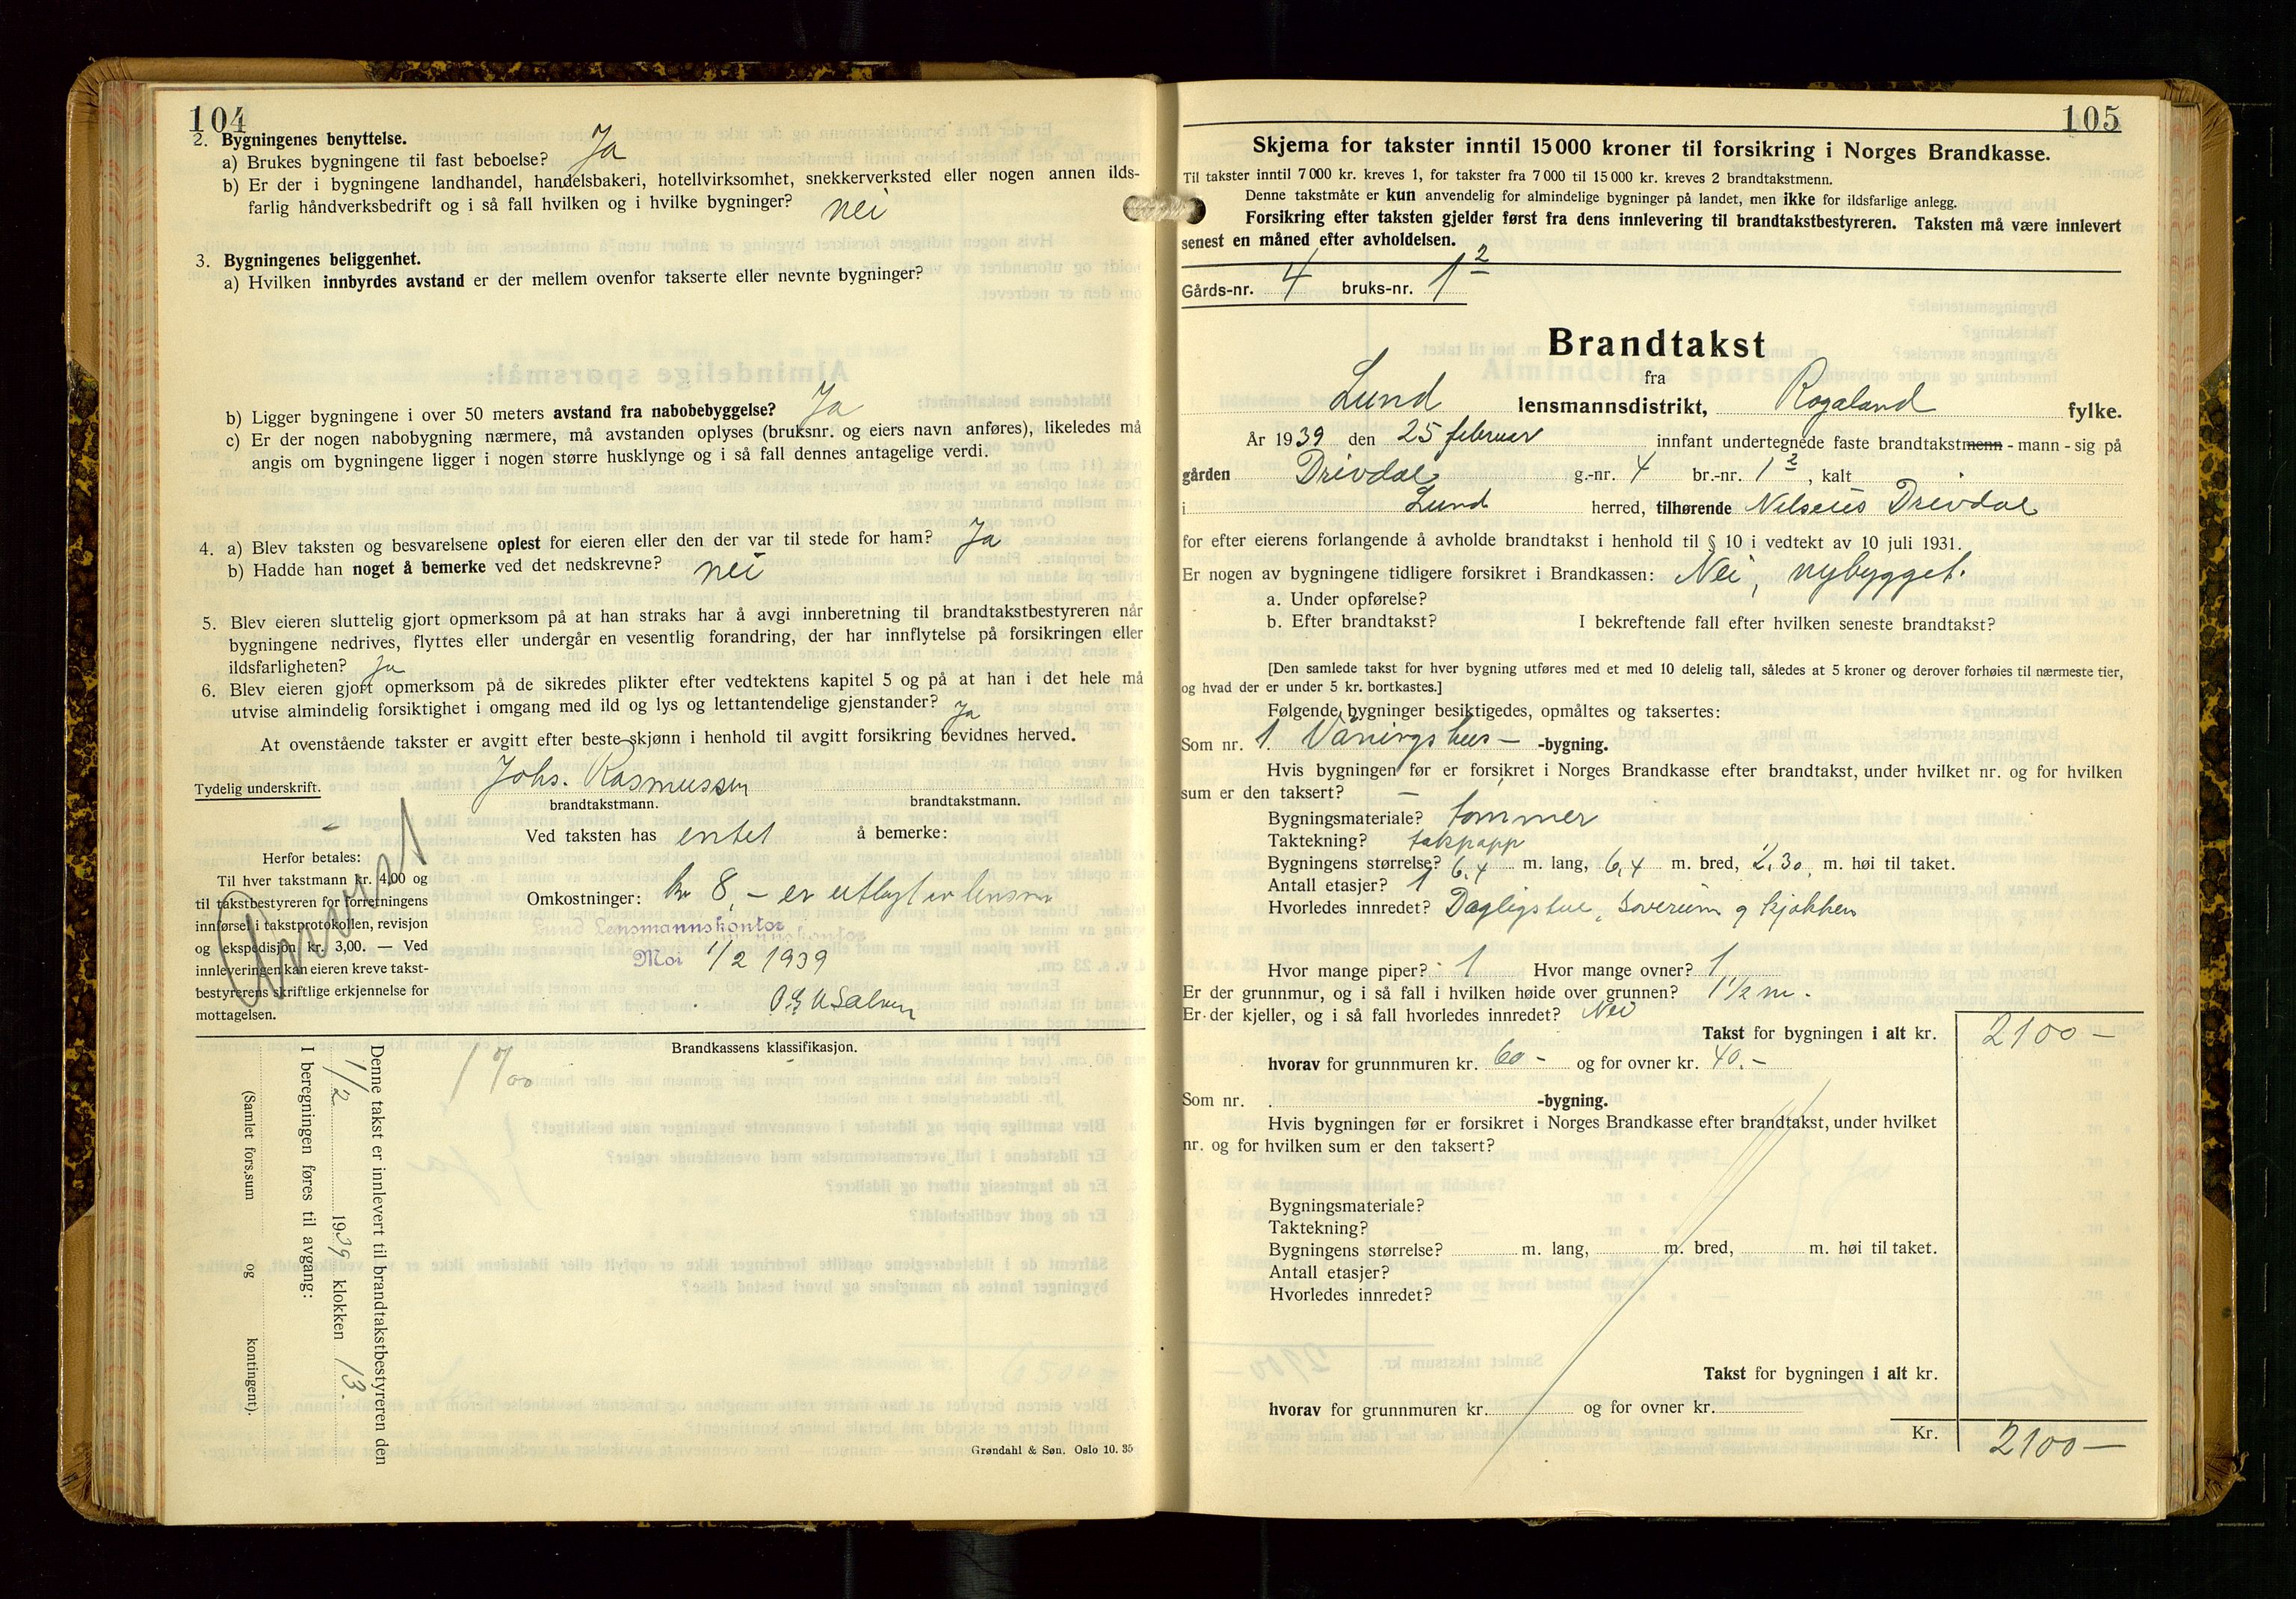 104
2. Bygningenes benyttelse.
a) Brukes bygningene til fast beboelse? Ja
b) Er der i bygningene landhandel, handelsbakeri, hotellvirksomhet, snekkerverksted eller nogen annen ilds-
farlig håndverksbedrift og i så fall hvilken og i hvilke bygninger? nei
3. Bygningenes beliggenhet.
a) Hvilken innbyrdes avstand er der mellem ovenfor takserte eller nevnte bygninger?
b) Ligger bygningene i over 50 meters avstand fra nabobebyggelse? Ja
c) Er der nogen nabobygning nærmere, må avstanden oplyses (bruksnr. og eiers navn anføres), likeledes må
angis om bygningene ligger i nogen større husklynge og i så fall dennes antagelige verdi.
4. a) Blev taksten og besvarelsene oplest for eieren eller den der var til stede for ham? Ja
b) Hadde han noget å bemerke ved det nedskrevne? nei
5. Blev eieren sluttelig gjort opmerksom på at han straks har å avgi innberetning til brandtakstbestyreren når
bygningene nedrives, flyttes eller undergår en vesentlig forandring, der har innflytelse på forsikringen eller
ildsfarligheten? Ja
6. Blev eieren gjort opmerksom på de sikredes plikter efter vedtektens kapitel 5 og på at han i det hele må
utvise almindelig forsiktighet i omgang med ild og lys og lettantendelige gjenstander? Ja
At ovenstående takster er avgitt efter beste skjønn i henhold til avgitt forsikring bevidnes herved.
Tydelig underskrift. Johs. Rasmussen
brandtakstmann. brandtakstmann.
Ved taksten has intet å bemerke:
Herfor betales:
Til hver takstmann kr. 4,00 og
til takstbestyreren for forretningens
innførsel i takstprotokollen, revisjon
og ekspedisjon kr. 3,00. — Ved
innleveringen kan eieren kreve takst-
bestyrerens skriftlige erkjennelse for
mottagelsen.
Omkostninger: kr 8,- er utlagt av lensm
Lund Lensmannskontor
Moi 1/2 1939
Brandkassens klassifikasjon.
1 0/00
Denne takst er innlevert til brandtakstbestyreren den
1/2 1939 klokken 13.
I beregningen føres til avgang:
(Samlet fors.sum og kontingent).
Grøndahl & Søn. Oslo 10. 35
105
Skjema for takster inntil 15 000 kroner til forsikring i Norges Brandkasse.
Til takster inntil 7 000 kr. kreves 1, for takster fra 7 000 til 15 000 kr. kreves 2 brandtakstmenn.
Denne takstmåte er kun anvendelig for almindelige bygninger på landet, men ikke for ildsfarlige anlegg.
Forsikring efter taksten gjelder først fra dens innlevering til brandtakstbestyreren. Taksten må være innlevert
senest en måned efter avholdelsen.
Gårds-nr. 4 bruks-nr. 1 2
Brandtakst
fra
Lund lensmannsdistrikt, Rogaland fylke.
År 1939 den 25 februar innfant undertegnede faste brandtakstmenn - mann - sig på
gården Drivdal g.-nr. 4 br.-nr. 1 2, kalt
i Lund herred, tilhørende Nilseus Drivdal
for efter eierens forlangende å avholde brandtakst i henhold til § 10 i vedtekt av 10 juli 1931.
Er nogen av bygningene tidligere forsikret i Brandkassen: Nei, nybygget.
a. Under opførelse?
b. Efter brandtakst? I bekreftende fall efter hvilken seneste brandtakst?
[Den samlede takst for hver bygning utføres med et med 10 delelig tall, således at 5 kroner og derover forhøies til nærmeste tier,
og hvad der er under 5 kr. bortkastes.]
Følgende bygninger besiktigedes, opmåltes og taksertes:
Som nr. 1 Våningshus- -bygning.
Hvis bygningen før er forsikret i Norges Brandkasse efter brandtakst, under hvilket nr. og for hvilken
sum er den taksert? —
Bygningsmateriale? tømmer
Taktekning? takpapp
Bygningens størrelse? 6,4 m. lang, 6,4 m. bred, 2,30 m. høi til taket.
Antall etasjer? 1
Hvorledes innredet? Dagligstue, soverum og kjøkken
Hvor mange piper? 1 Hvor mange ovner? 1
Er der grunnmur, og i så fall i hvilken høide over grunnen? 1 1/2 m.
Er der kjeller, og i så fall hvorledes innredet? Nei
Takst for bygningen i alt kr. 2100 —
hvorav for grunnmuren kr. 60 - og for ovner kr. 40. -
Som nr. -bygning.
Hvis bygningen før er forsikret i Norges Brandkasse efter brandtakst, under hvilket
nr. og for hvilken sum er den taksert?
Bygningsmateriale?
Taktekning?
Bygningens størrelse? m. lang, m. bred, m. høi til taket.
Antall etasjer?
Hvorledes innredet?
Takst for bygningen i alt kr.
hvorav for grunnmuren kr. og for ovner kr.
Kr. 2100 —